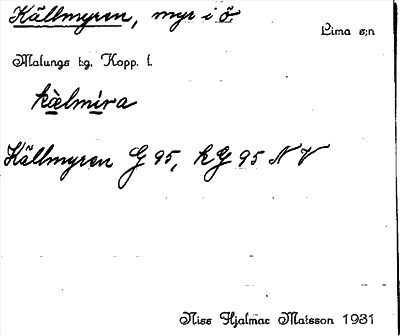 Källmyren, myr i ö.
Lima s:n
Malungs t:g, Kopp. l.
kälmira
Källmyren G 95, kG 95 N V
Niss Hjalmar Matsson 1931